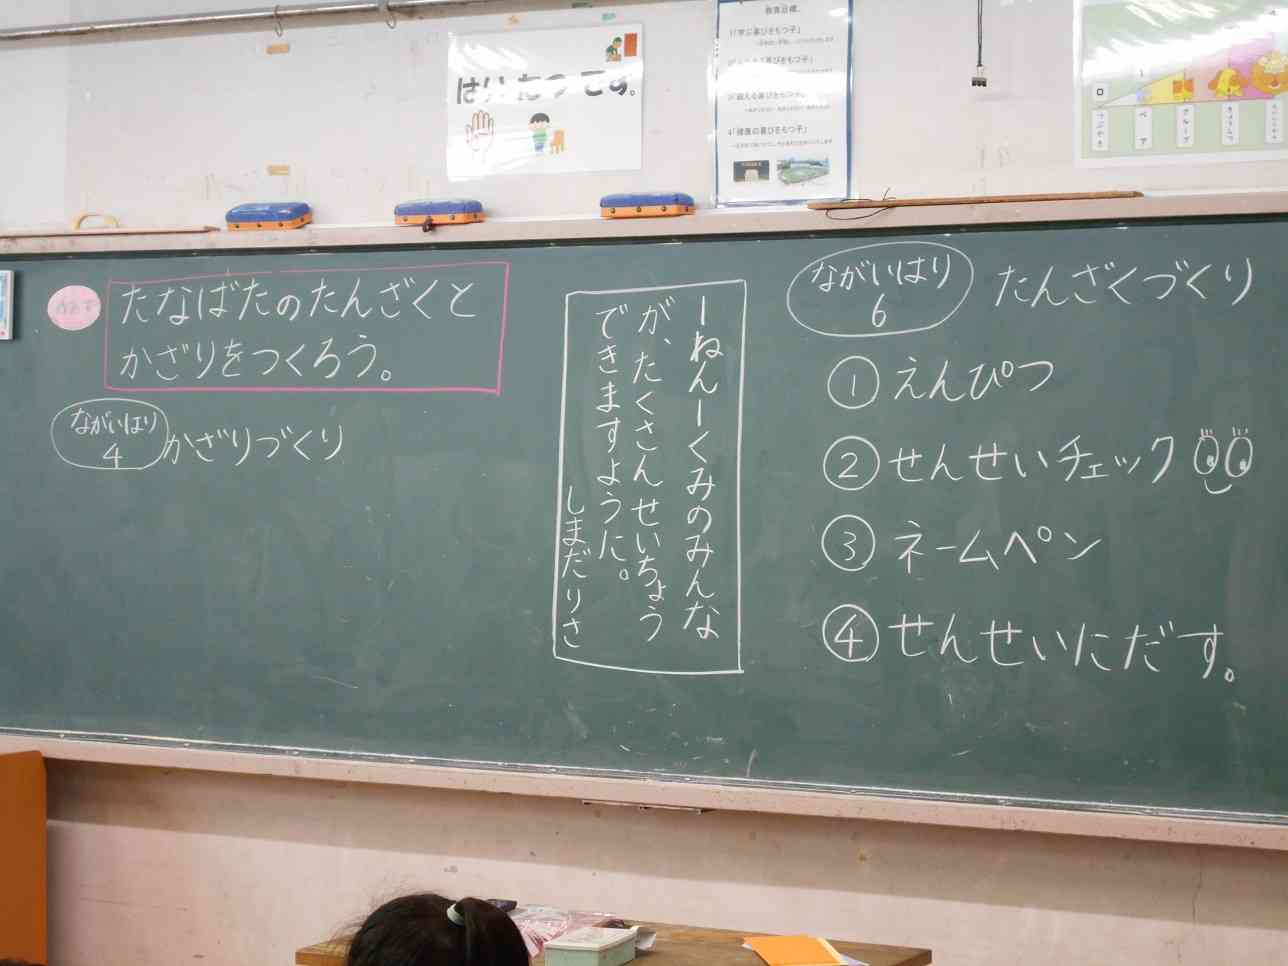 はいたつです。
教育目標
1「学ぶ喜びをもつ子」
3「鍛える喜びをもつ子」
4「健康の喜びをもつ子」
つぶやき
ペア
グループ
きょうしつ
めあて
たなばたのたんざくと
かざりをつくろう。
ながいはり
4
かざりづくり
一ねん一くみのみんな
が、たくさんせいちょう
できますように。
しまだりさ
ながいはり
6
たんざくづくり
① えんぴつ
② せんせいチェック
③ ネームペン
④ せんせいにだす。